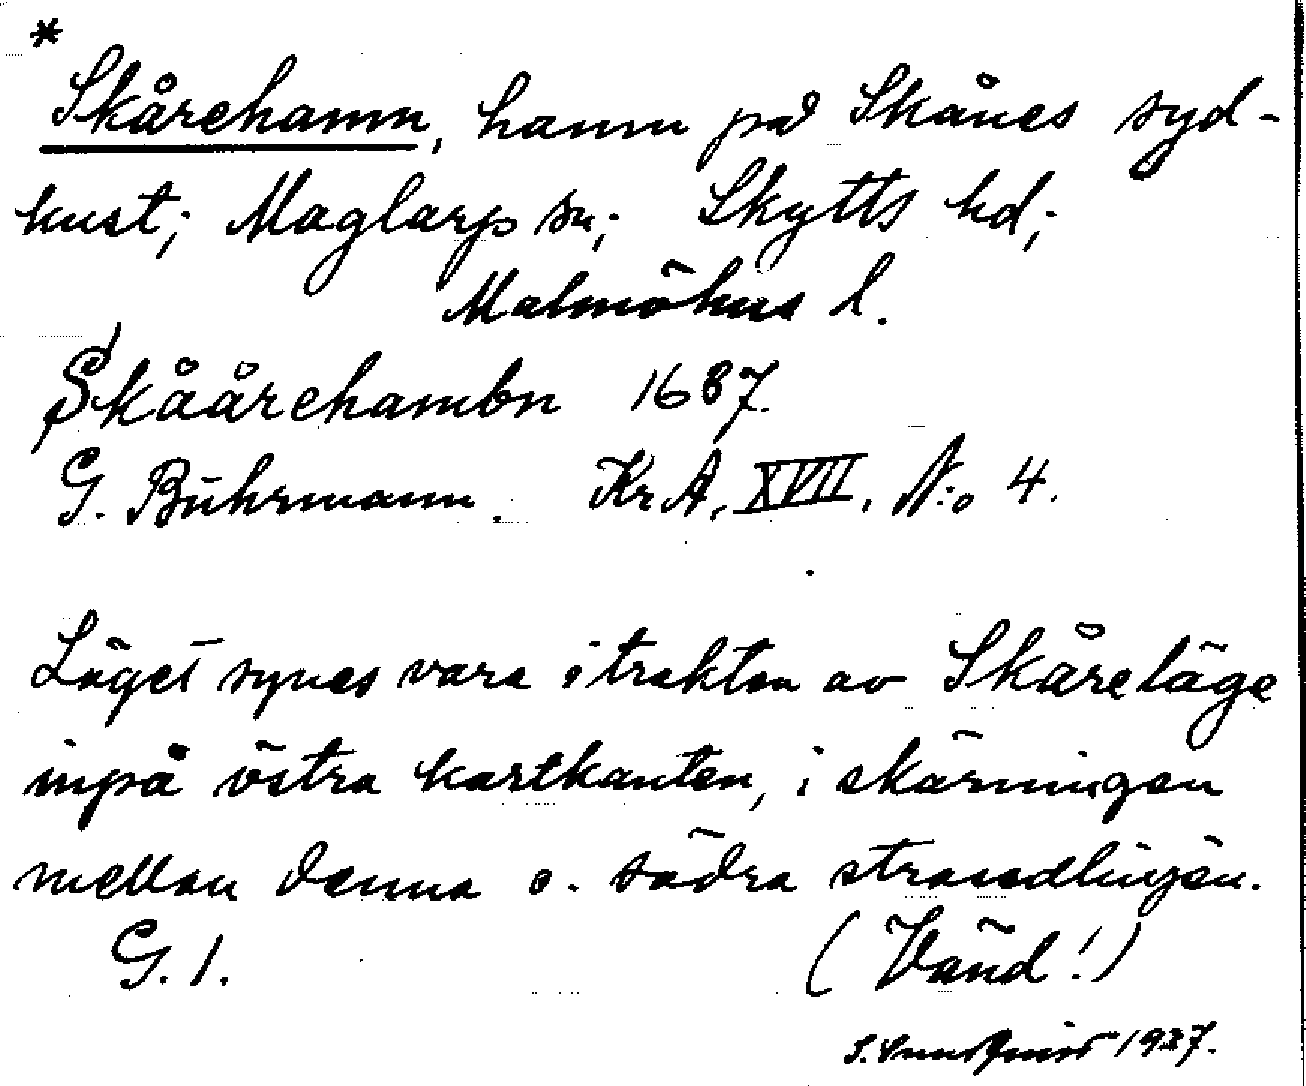 *
Skårehamn, hamn på Skånes syd-
kust; Maglarp sn; Skytts hd;
Malmöhus l.
Skåårehambn 1687.
G. Buhrmann. Kr. A. XVII. N:o 4.
Läget synes vara i trakten av Skåreläge
inpå östra kartkanten, i skärningen
mellan denna o. södra strandlinjen.
G. 1. (Vänd!)
S. 1937.